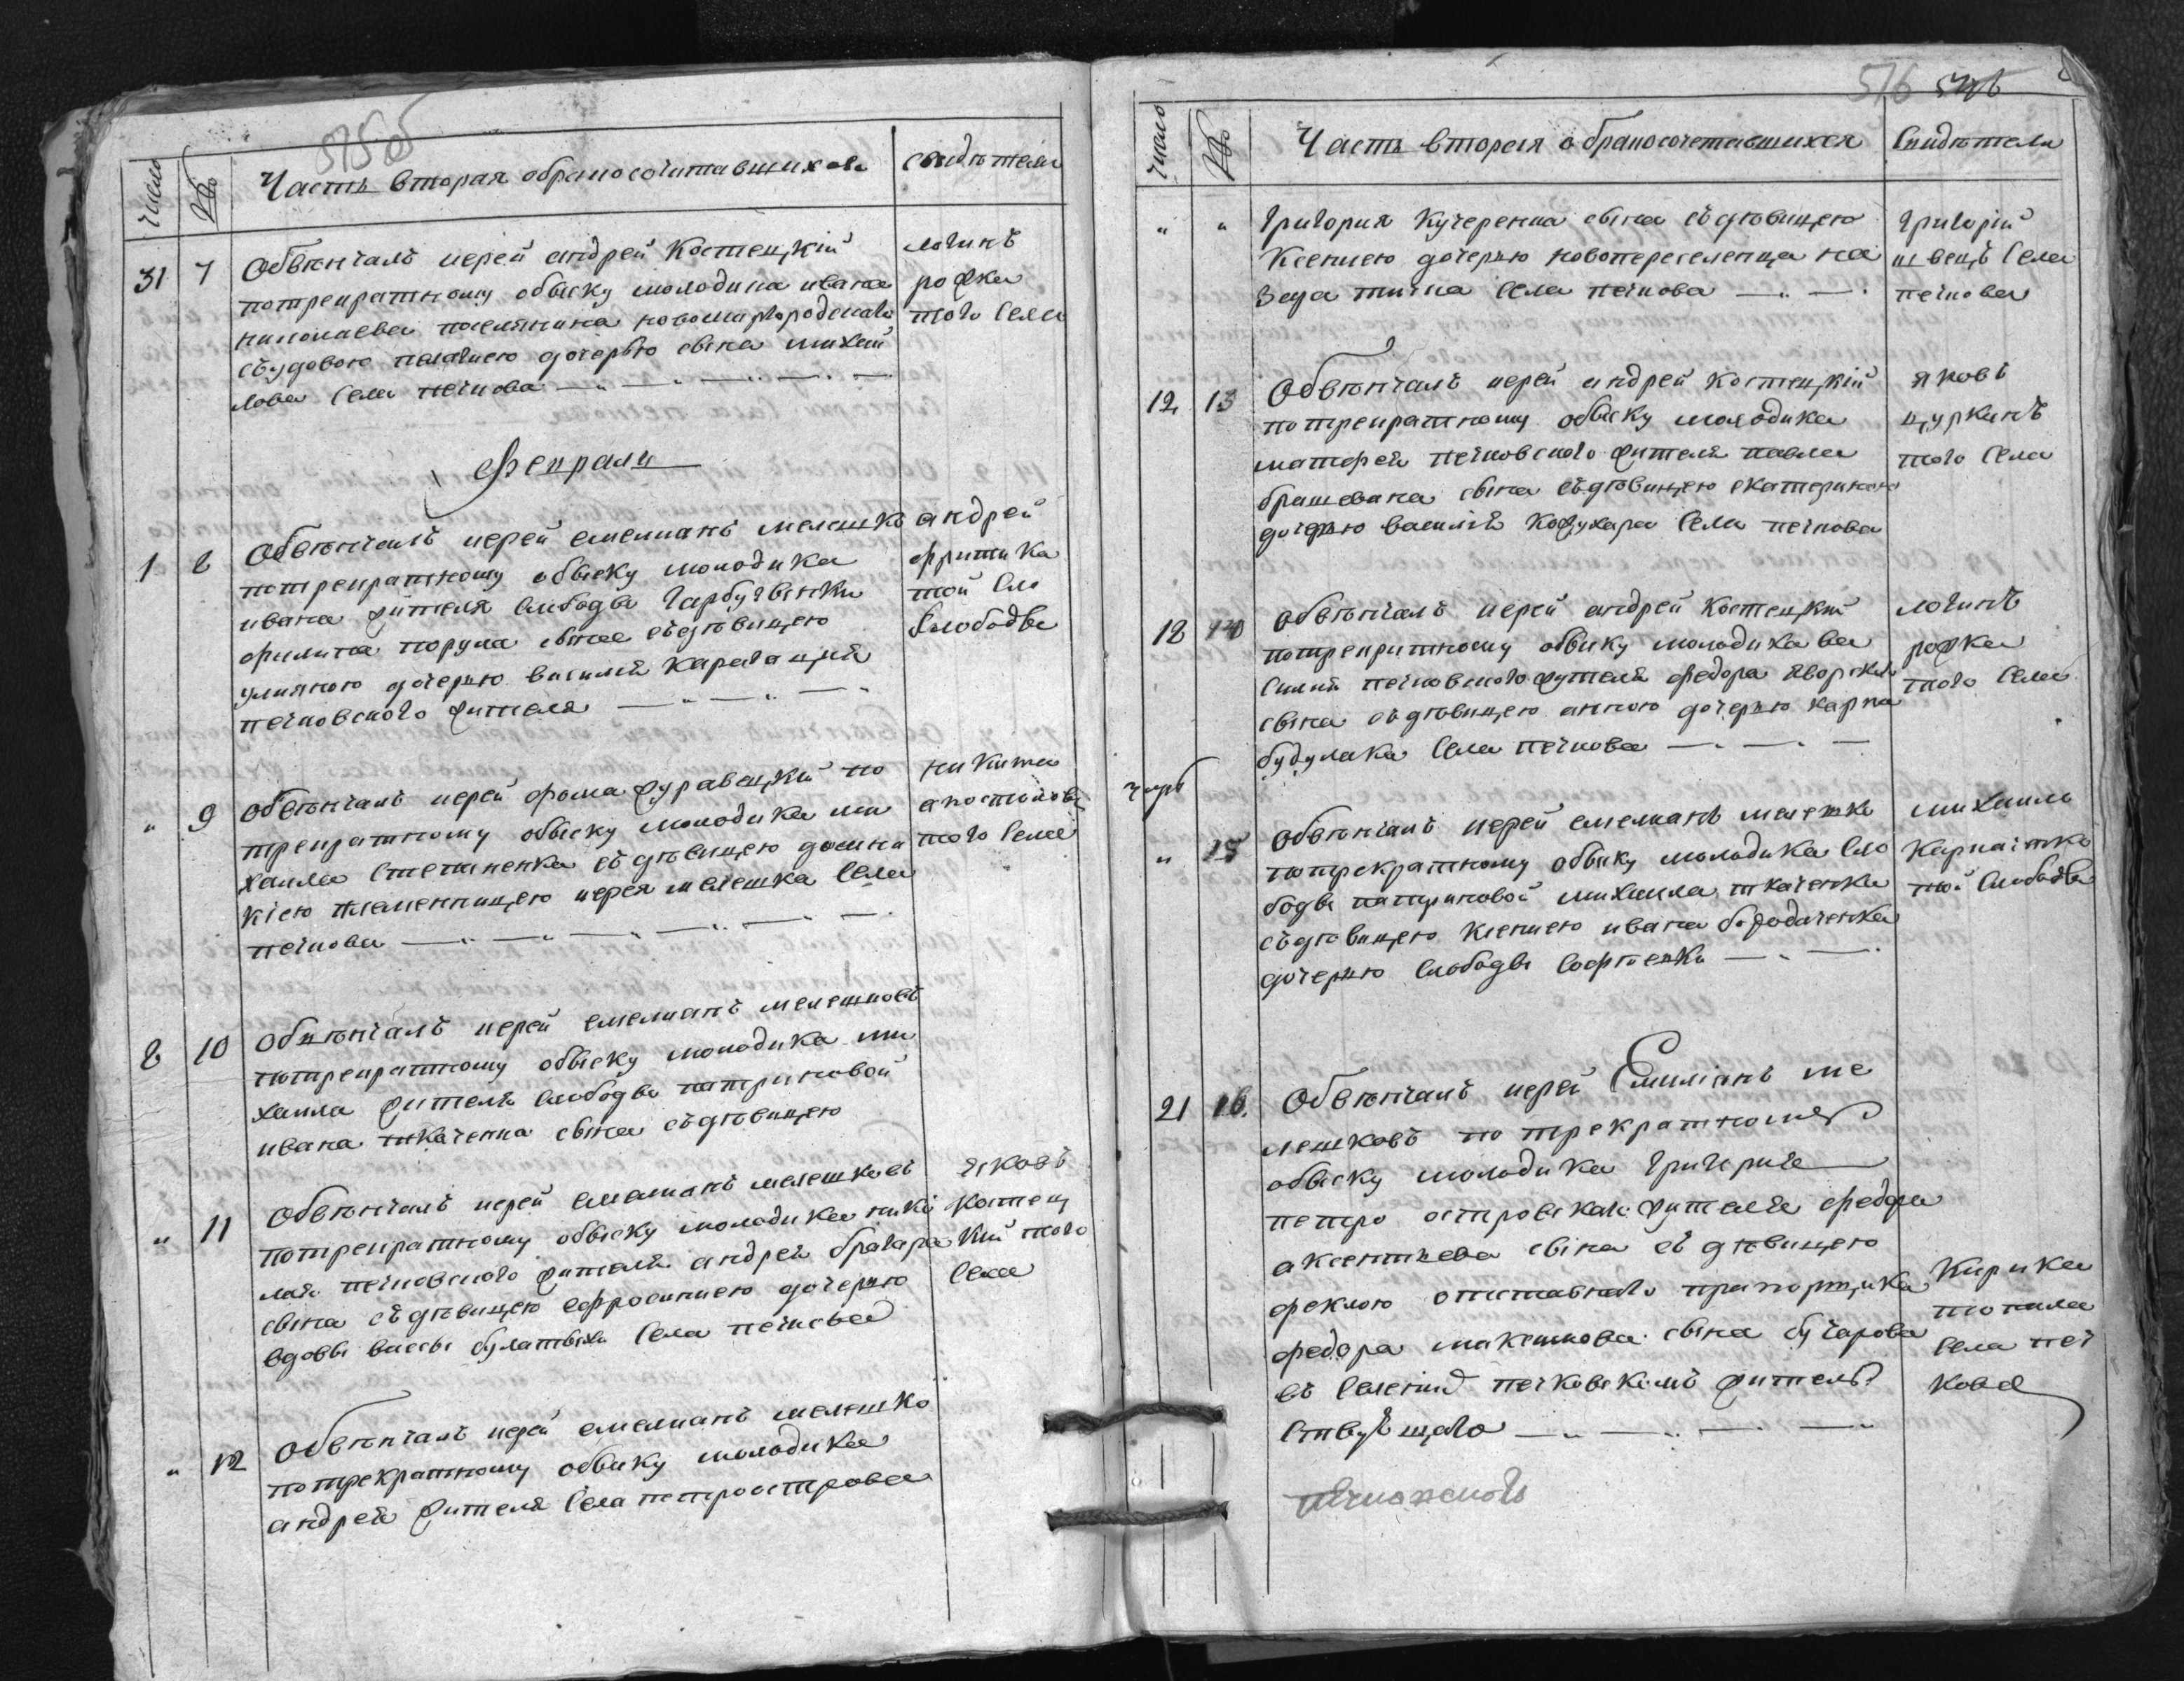 575об
Число № Часть вторая обракосочитавшихся свидѣтели
31 7 Обвѣнчалъ иерей андрей Костецкій
потрекратному обыску молодика ивана
николаева поселянина новомиргородскаго
съ удовою пелагиею дочерью сына михай
лова Села печкова
логинъ
рожка
того Села
Февраля
1 8 Обвѣнчалъ иерей емелианъ мелешко
потрекратному обыску молодика
ивана жителя Слободы Гарбузынки
филипа сына съдѣвицею
улияною дочерью василия карагация
печковского жителя
андрей
той Сло
Слободы
" 9 обвѣнчалъ иерей фома журавецкий по
трекратному обыску молодика ми
хаила Степаненка съдѣвицею домни
кіею племенницею иерея мелешка Села
печкова
никита
апостоловъ
того Села
8 10 Обвѣнчалъ иерей емелианъ мелешковъ
потрекратному обыску молодика ми
хаила жителя слободы патриковой
ивана ткаченка сына съдѣвицею
" 11 Обвѣнчалъ иерей емелианъ мелешковъ
потрекратному обыску молодика нико
лая печковского жителя андрея брагаря
сына съдѣвицею ефросиниею дочерью
вдовы васьсы Села печкова
яковъ
костец
кий того
Села
" 12 Обвѣнчалъ иерей емелианъ мелешко
потрекратному обыску молодика
андрея жителя Села петроострова
516
Число № Часть вторая обракосочетавшихся Свидѣтели
" " Григория Кучеренка сына съдѣвицею
Ксениею дочерью новопереселенца
Села печкова
Григорій
швецъ Села
печкова
12 13 Обвѣнчалъ иерей андрей костецкій
потрекратному обыску молодика
матфея печковского жителя павла
брашевана сына съдѣвицею екатериною
дочерью василія кожухаря Села печкова
яковъ
цуркинъ
того Села
12 14 Обвѣнчалъ иерей андрей костецкий
потрекратному обыску молодика ва
силия печковского жителя федора яворского
сына съдѣвицею анною дочерью карпа
будулака Села печкова
логинъ
рожка
того Села
" 15 обвѣнчалъ иерей емелианъ мелешко
потрекратному обыску молодика сло
боды патриковой михаила ткаченка
съдѣвицею ксениею ивана бородаченка
дочерью Слободы Софіевки
михаилъ
той Слободы
21 16. Обвѣнчалъ иерей Емилианъ ме
лешковъ по трекратному
обыску молодика Григория
петро островскаго жителя федора
аксентиева сына съ дѣвицею
феклою отставнаго прапорщика
федора максимова сына бугарова
въ Селении печковскомъ жителъ
ствующаго
Кирика
топала
Села печ
кова
печковского